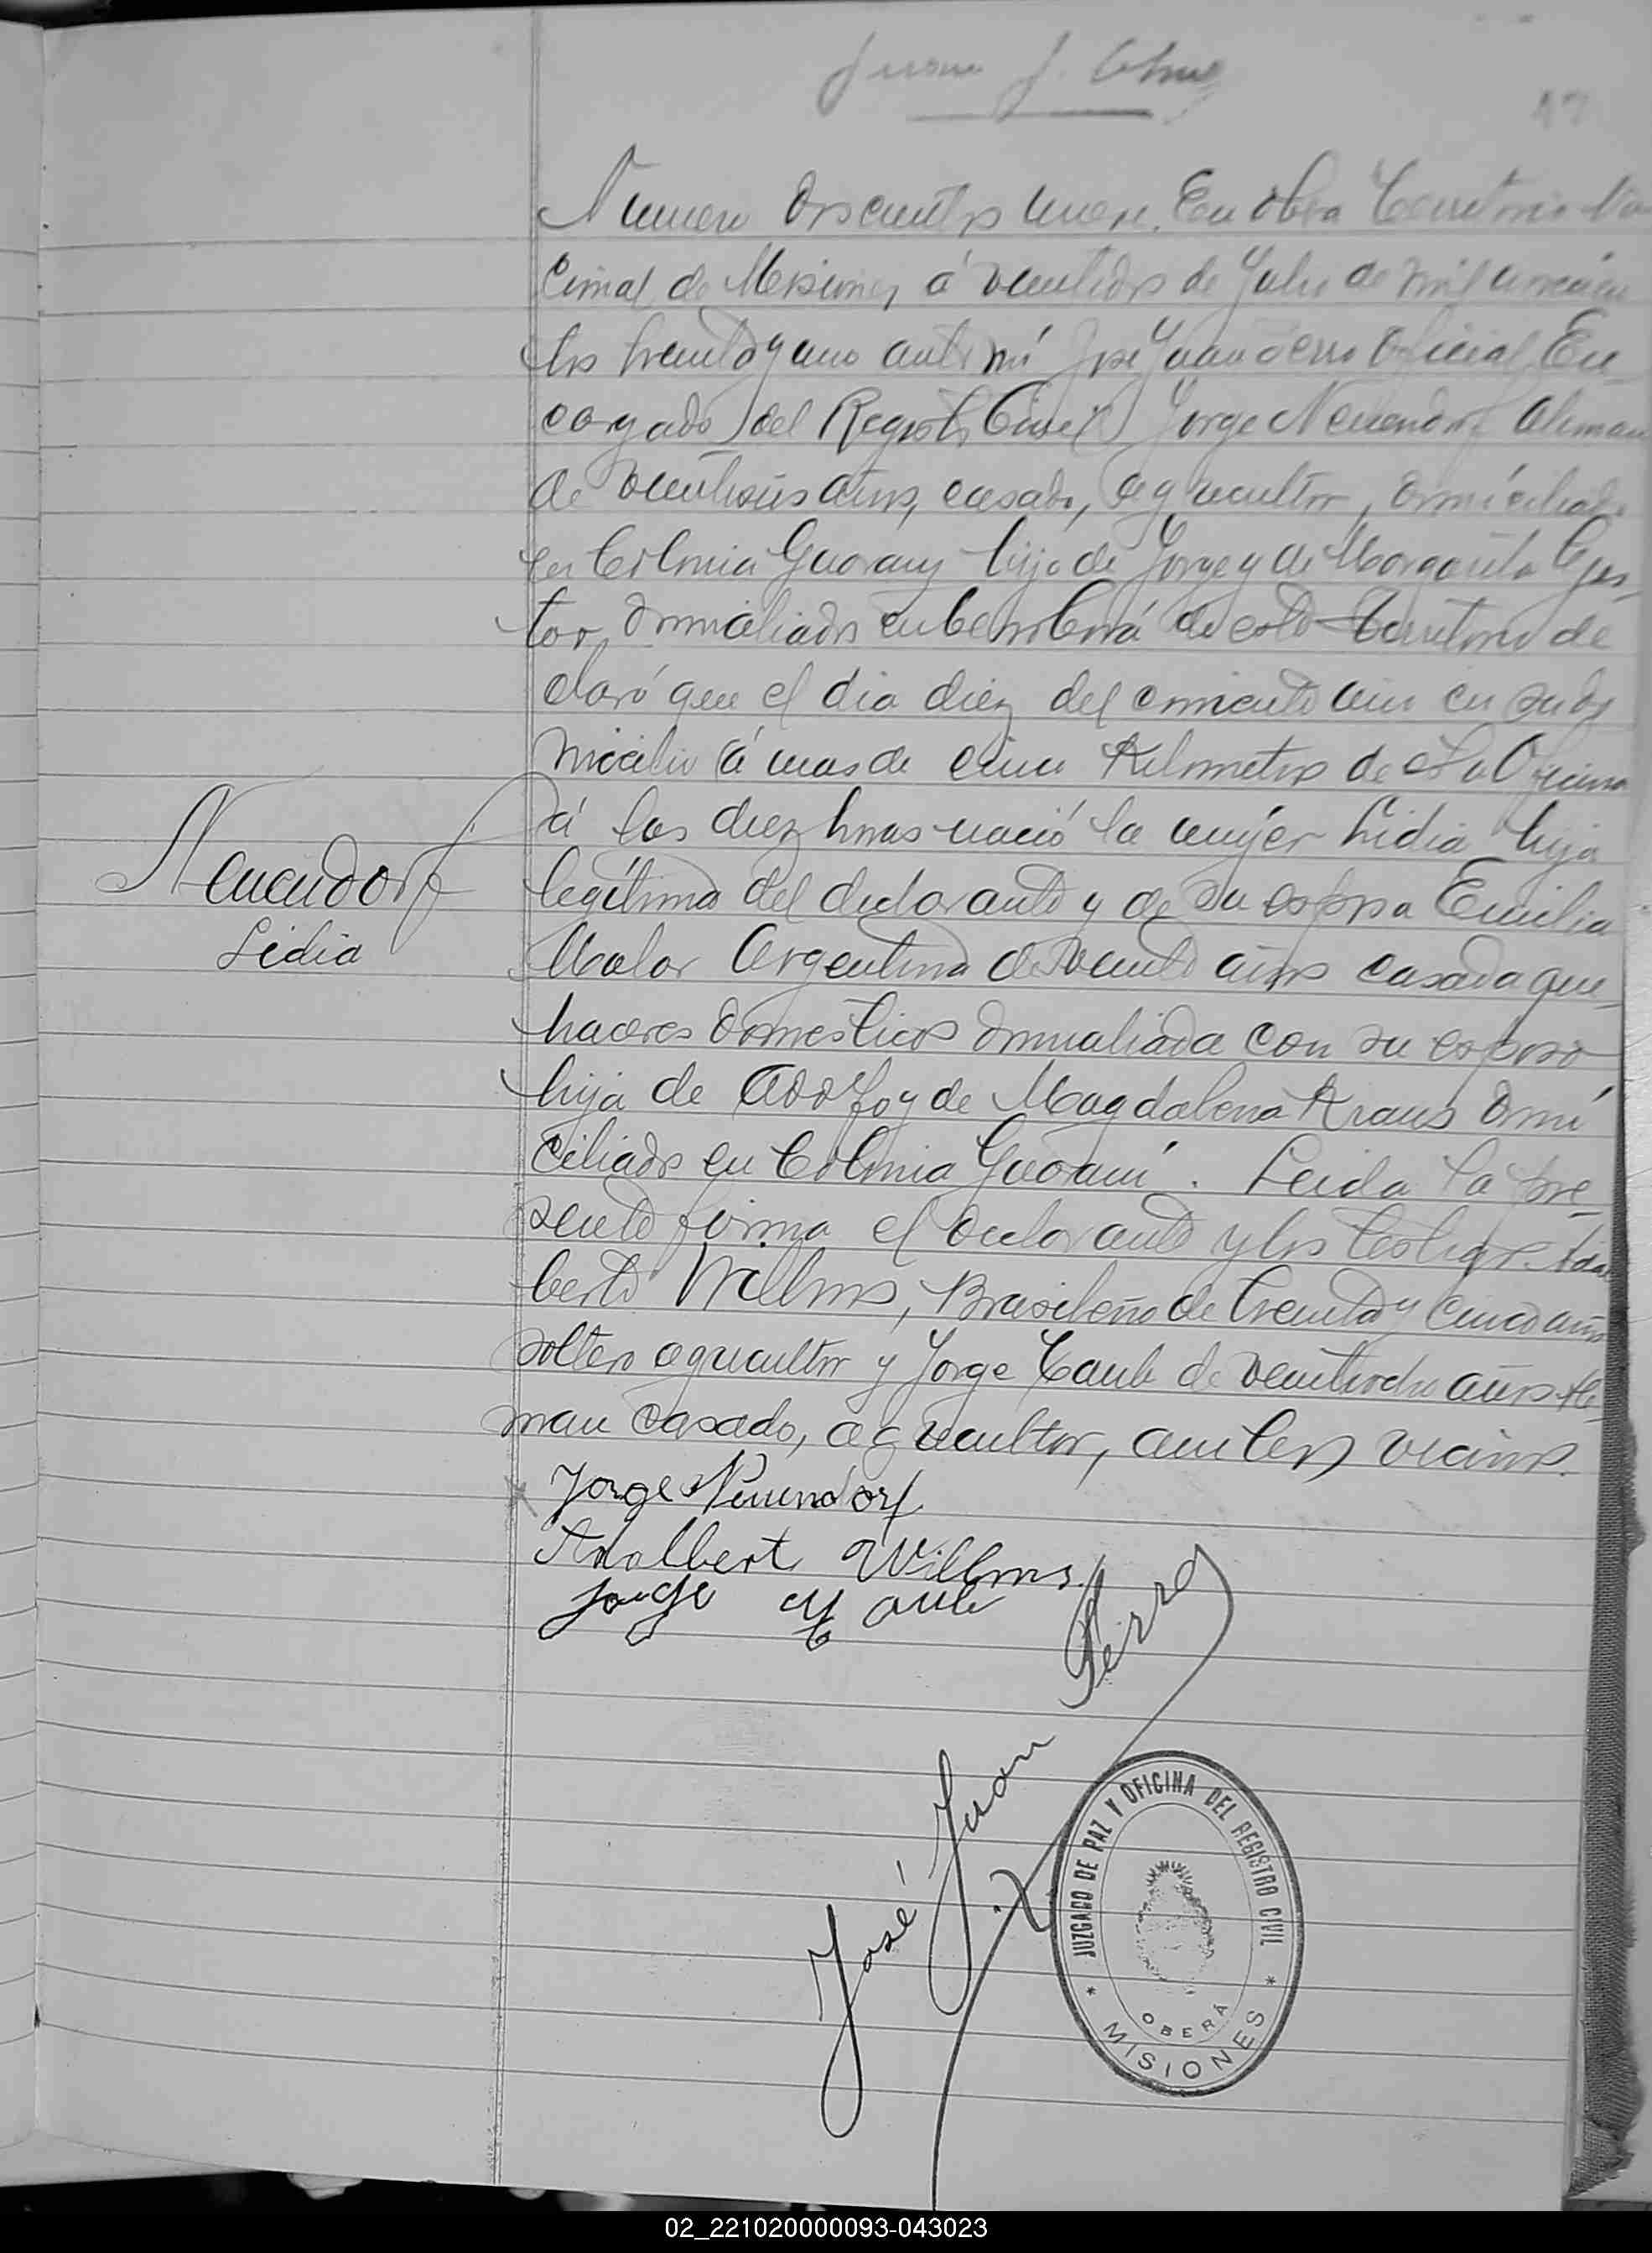 Juan J.
17
Numero doscientos nueve. En Oberá Territorio Na
cional de Misiones, á veintidos de Julio de mil novecien
tos treinta y uno ante mi José Juan Perro Oficial En-
cargado del Registro Civil Jorge Neuendorf Aleman
de veintiseis años, casado, agricultor, domiciliado
en Colonia Guarany hijo de Jorge y de Margarita
domiciliados en de este Territorio de
claró que el dia diez del corriente mes en su do
micilio á mas de cinco Kilometros de esta Oficina
á las diez horas nació la mujer Lidia hija
Neuendorf
Lidia
legítima del declarante y de su esposa Emilia
Malar Argentina de veinte años casada que-
haceres domesticos domiciliada con su esposo
hija de Adolfo y de Magdalena Kraus domi
ciliados en Colonia Guaraní. Leida la pre-
sente firma el declarante y los testigos Adal
berto Willms, Brasileño de treinta y cinco años
soltero agricultor y Jorge Taube de veintiocho años Ale
man casado, agricultor, ambos vecinos.
Jorge Neuendorf
Adalbert Willms
Jorge Taube
José Juan Perro
JUZGADO DE PAZ Y OFICINA DEL REGISTRO CIVIL
OBERÁ
* MISIONES *
02_221020000093-043023